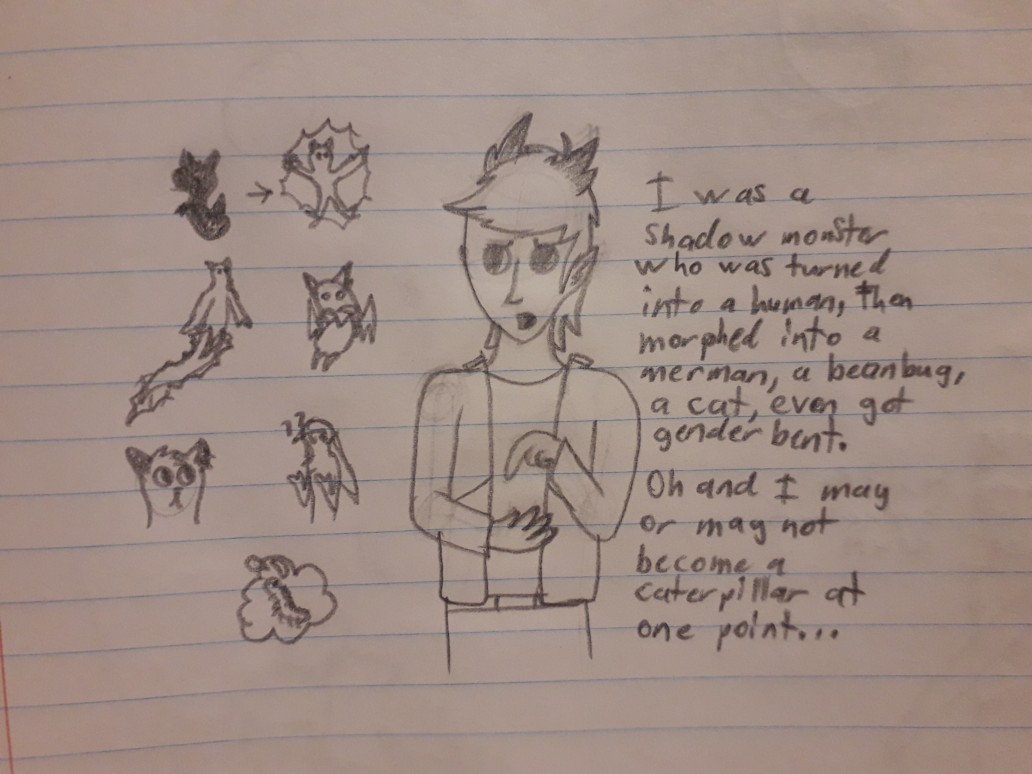 I was a
shadow monster
who was turned
into a human, then
morphed into a
merman, a beanbug,
a cat, even got
gender bent.
Oh and I may
or may not
become a
caterpillar at
one point...
!?